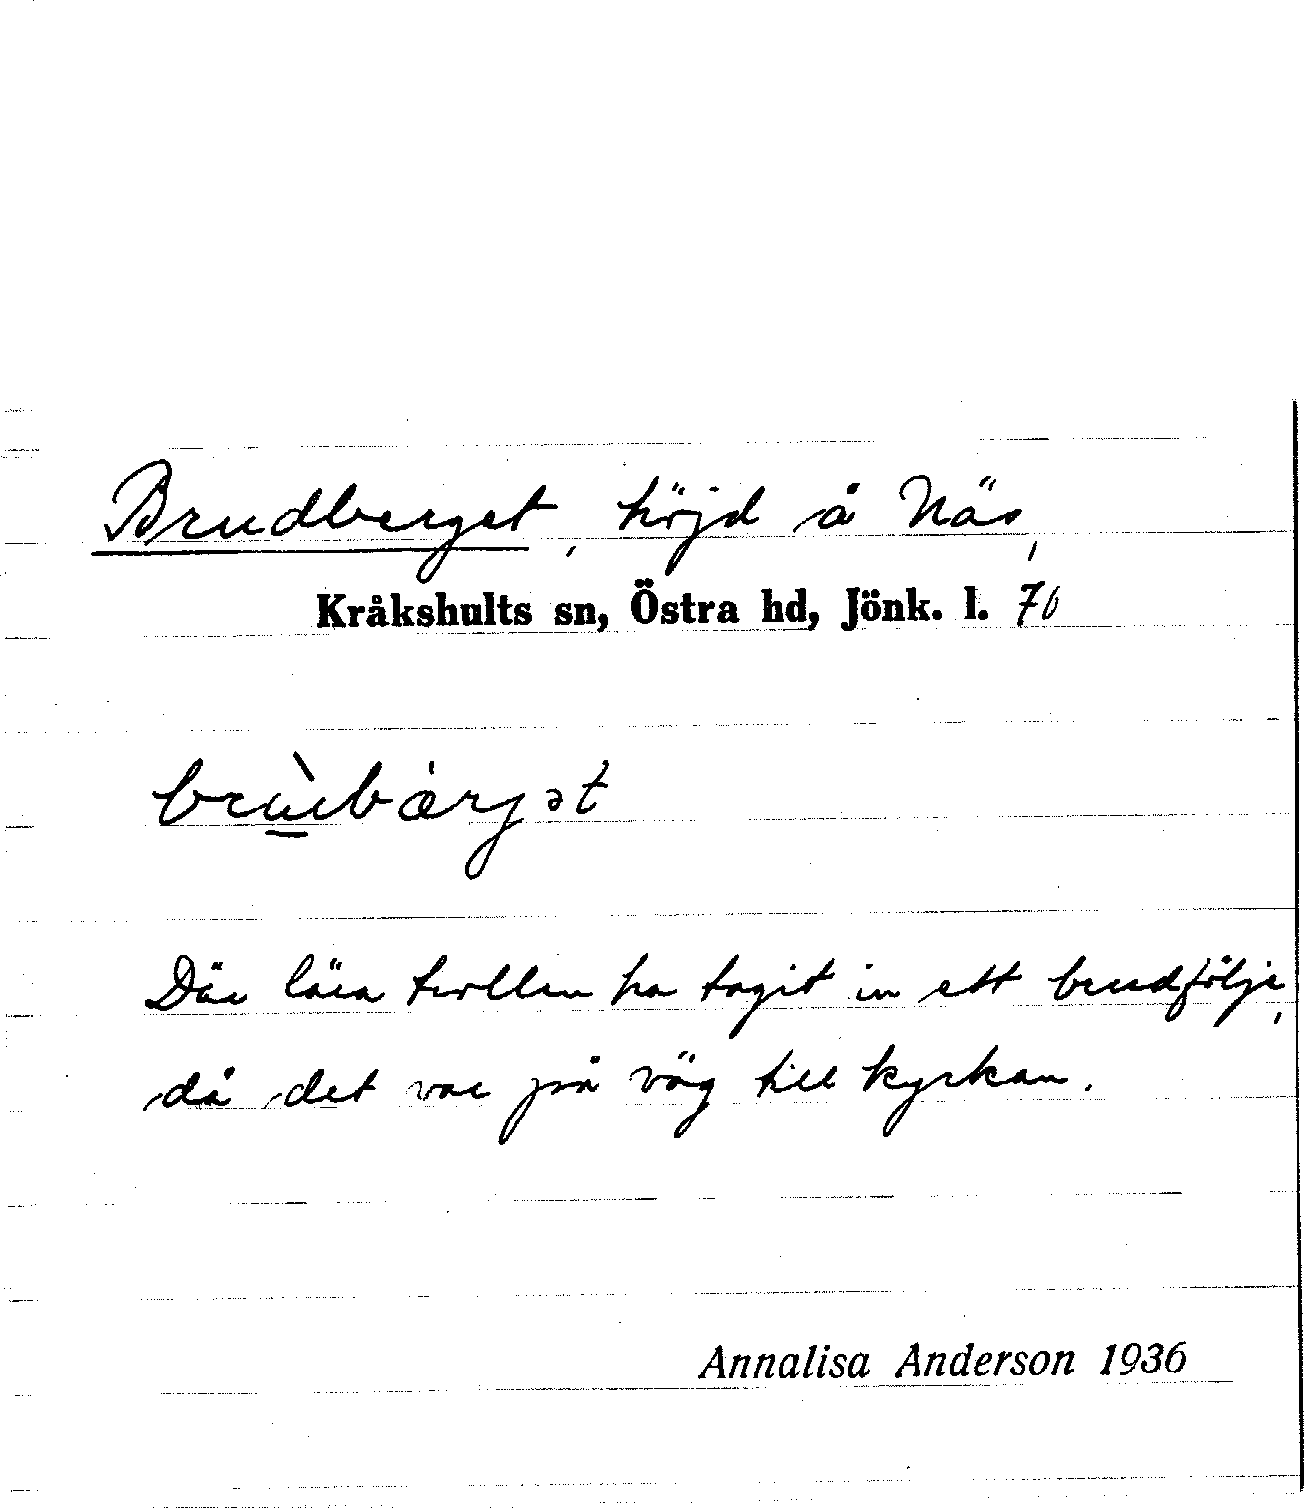 Brudberget, höjd å Näs,
Kråkshults sn, Östra hd, Jönk. l. 76
brù̱bærjət
Där lära trollen ha tagit in ett brudfölje,
då det var på väg till kyrkan.
Annalisa Anderson 1936